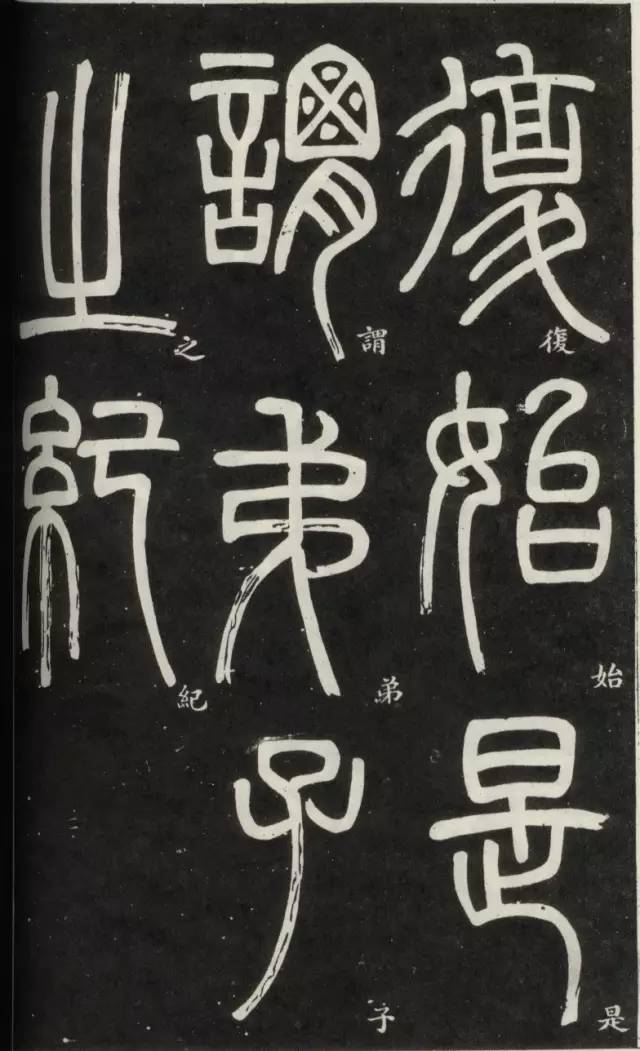 復始是
謂弟子
之紀